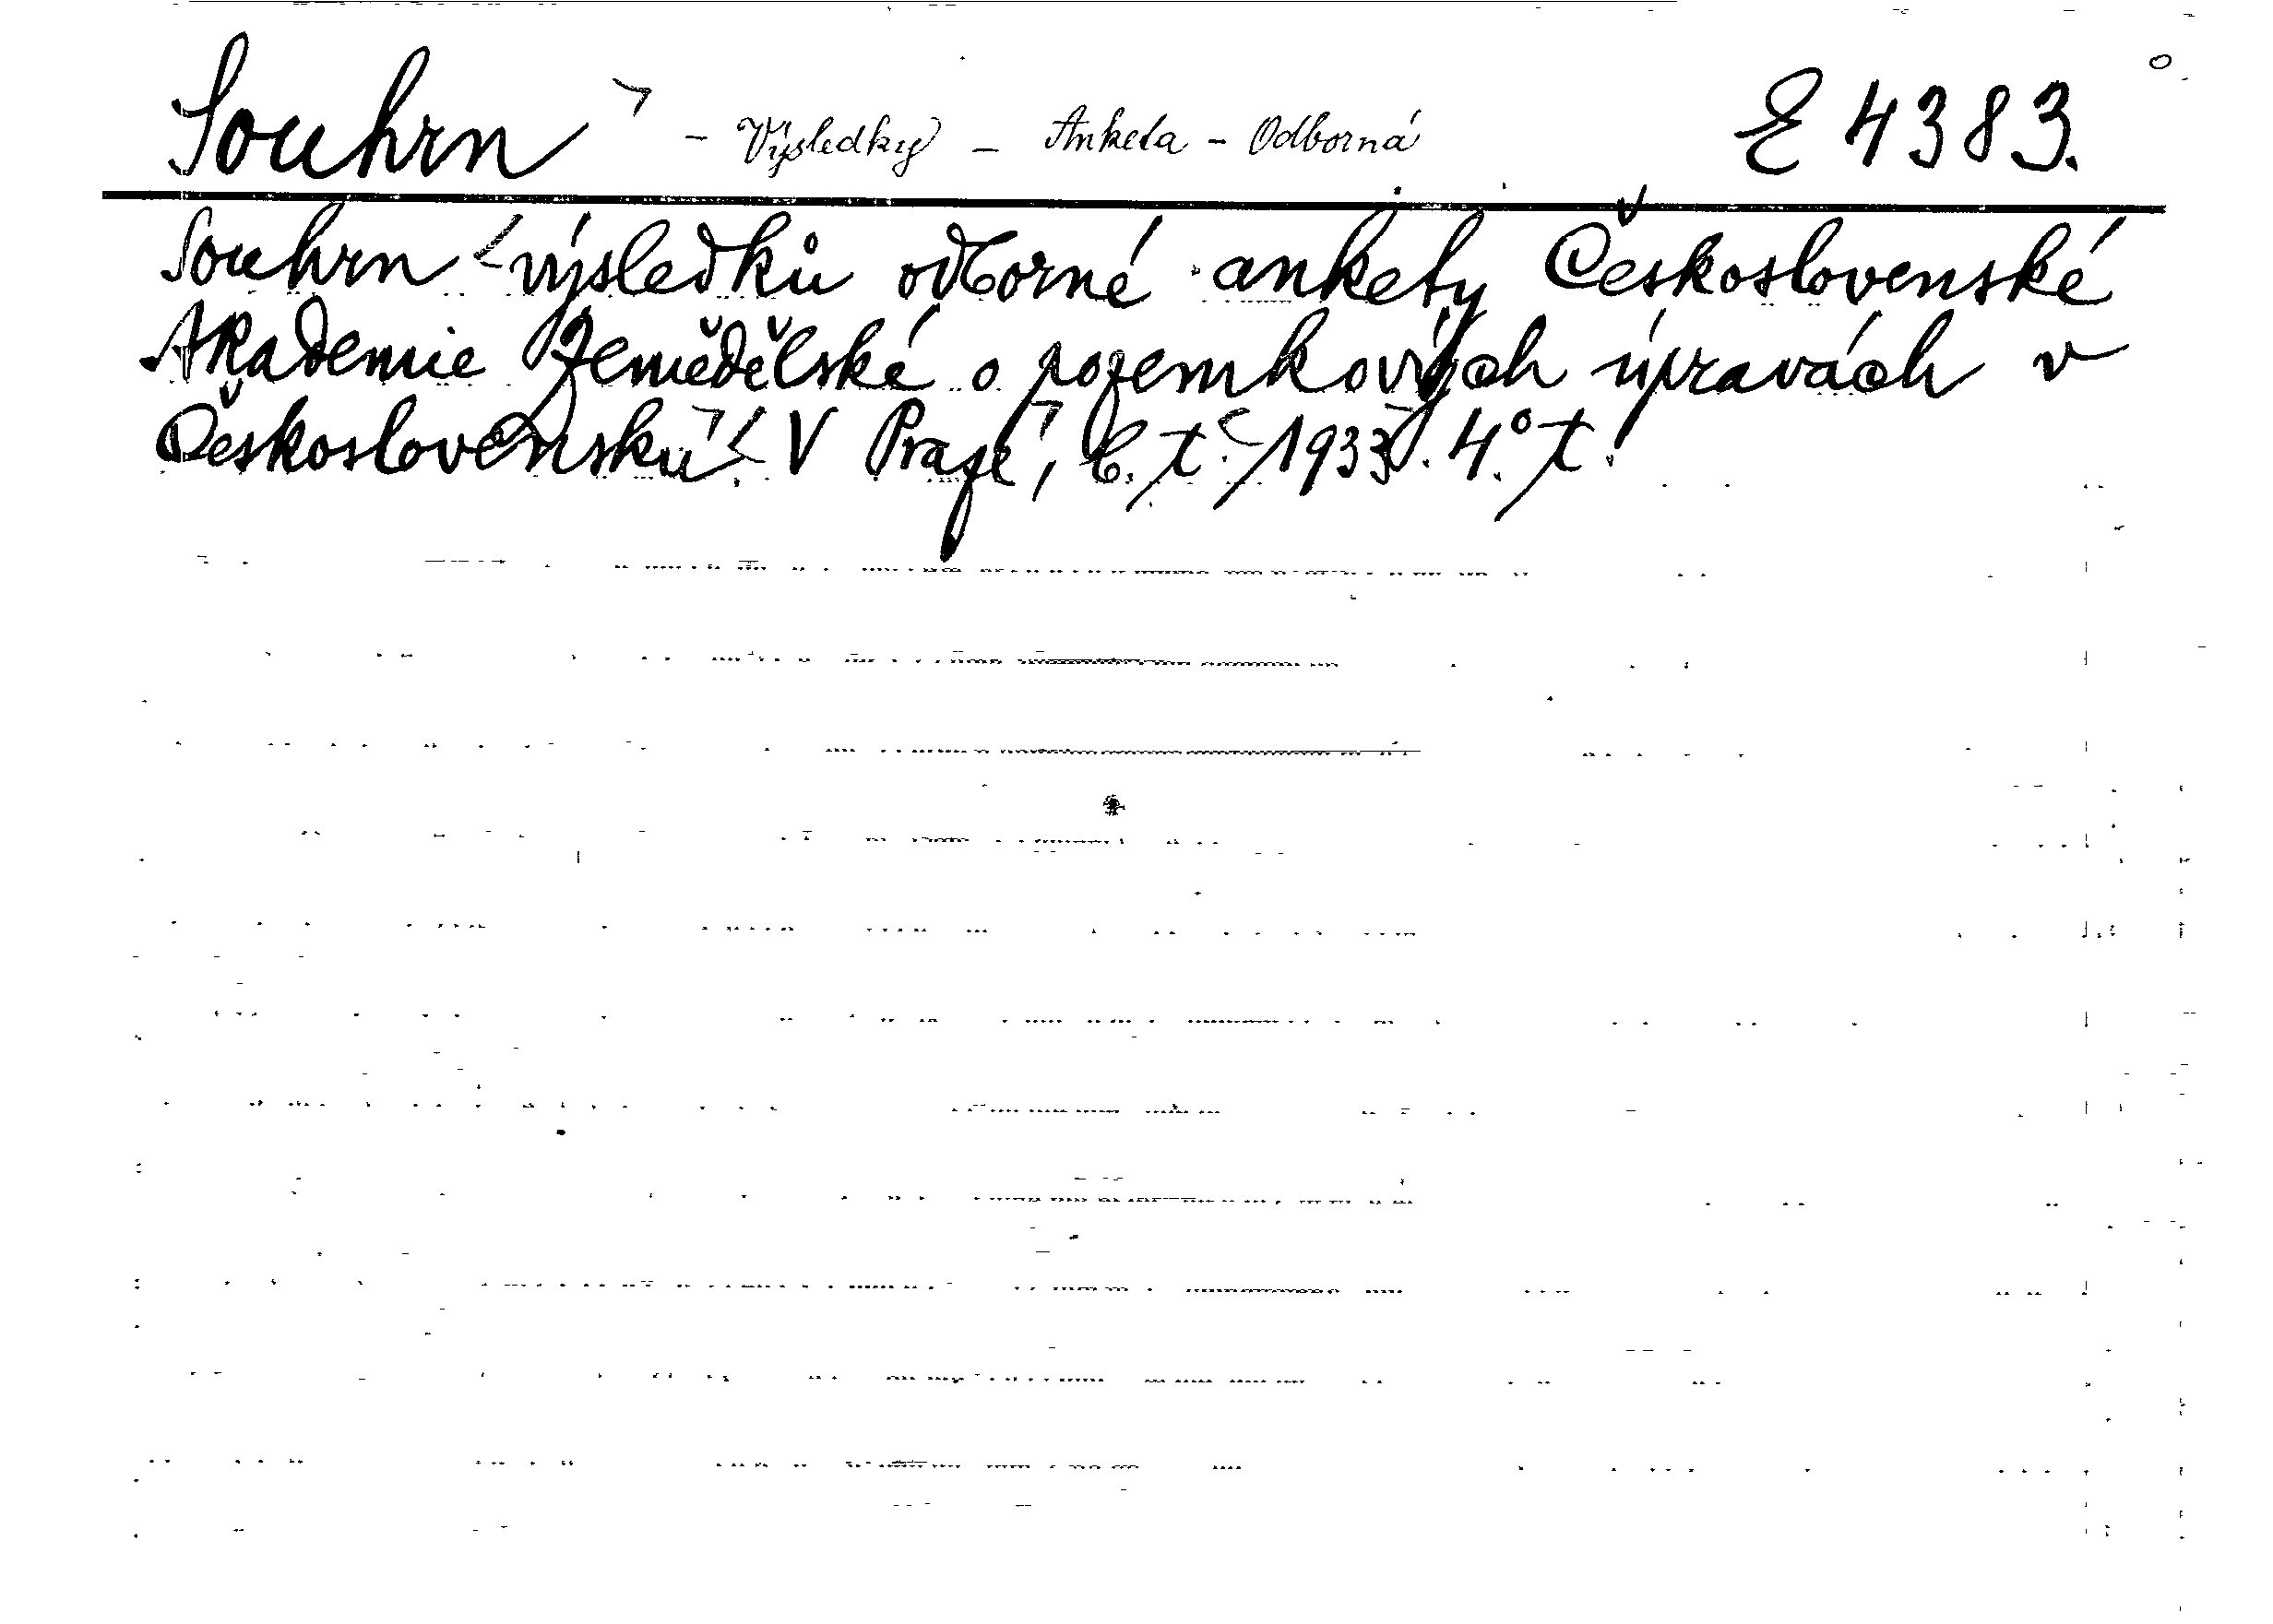 Souhrn - Výsledky - Anketa - Odborná E 4383.
Souhrn výsledků odborné ankety Československé
Akademie Zemědělské o pozemkových úpravách v
Československu. V Praze, b. t. 1933. 4° t.